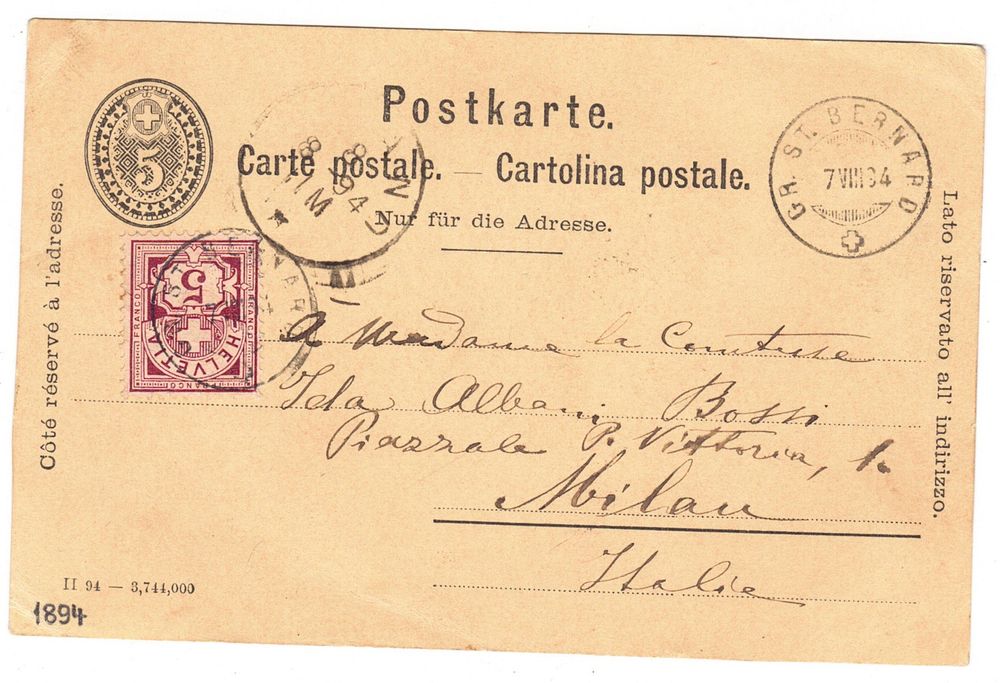 Postkarte.
Carte postale. — Cartolina postale.
Nur für die Adresse.
5
GR. ST. BERNARD
7 VIII 94
8 8
94
11 M
Côté réservé à l'adresse.
Lato riservato all' indirizzo.
5
FRANCO
FRANCO
FRANCO
HELVETIA
ST. BERNARD
A Madame la Comtesse
Ida Albani Bossi
Piazzale P. Vittoria, 1.
Milan
Italie
II 94 — 3,744,000
1894